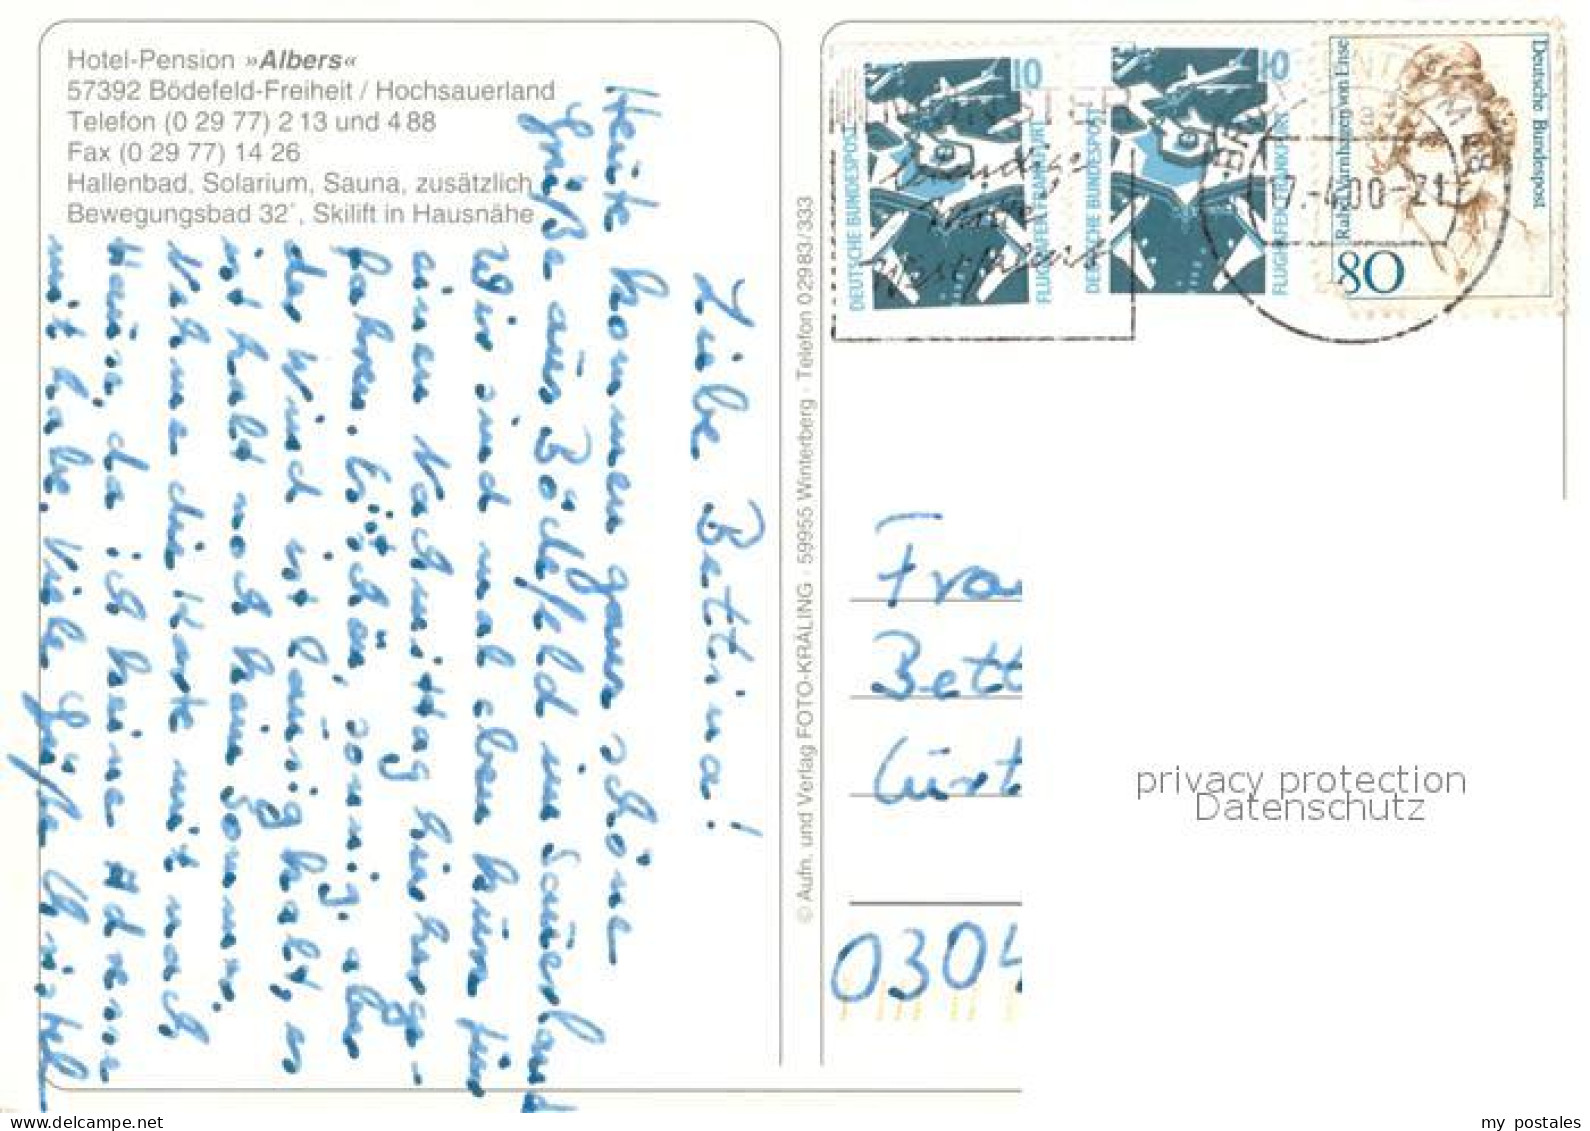 Hotel-Pension »Albers«
57392 Bödefeld-Freiheit / Hochsauerland
Telefon (0 29 77) 2 13 und 4 88
Fax (0 29 77) 14 26
Hallenbad, Solarium, Sauna, zusätzlich
Bewegungsbad 32°, Skilift in Hausnähe
Liebe Bettina!
Heute kommen ganz schöne
Grüße aus Bödefeld im Sauerland
Wir sind mal eben hier für
einen Nachmittag hierherge-
fahren. Ist schön, sonnig, aber
der Wind ist lausig kalt, es
ist halt noch kein Sommer.
Nehme die Karte mit nach
Haus, da ich keine Adresse
mit habe. Viele Grüße Christel
© Aufn. und Verlag FOTO-KRÄLING · 59955 Winterberg · Telefon 0 29 83 / 333
DEUTSCHE BUNDESPOST
10
FLUGHAFEN FRANKFURT
DEUTSCHE BUNDESPOST
10
FLUGHAFEN FRANKFURT
Deutsche Bundespost
Rahel Varnhagen von Ense
80
17.-4.00-21
Frau
Bett
0304
privacy protection
Datenschutz
www.delcampe.net
my postales